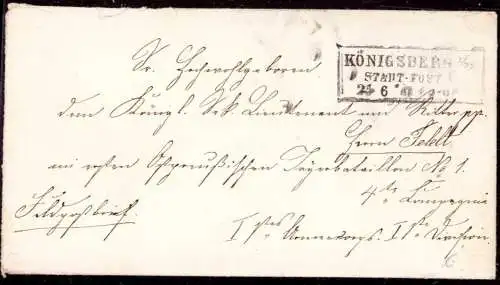 KÖNIGSBERG
STADT-POST
25 6
Sr. Hochwohlgeboren
dem Königl. Sek. Lieutenant und Ritter pp.
Herrn Feldt
im ersten Ostpreußischen Jägerbataillon No 1.
4te Compagnie
Feldpostbrief.
Istes Armeekorps. Iste Division